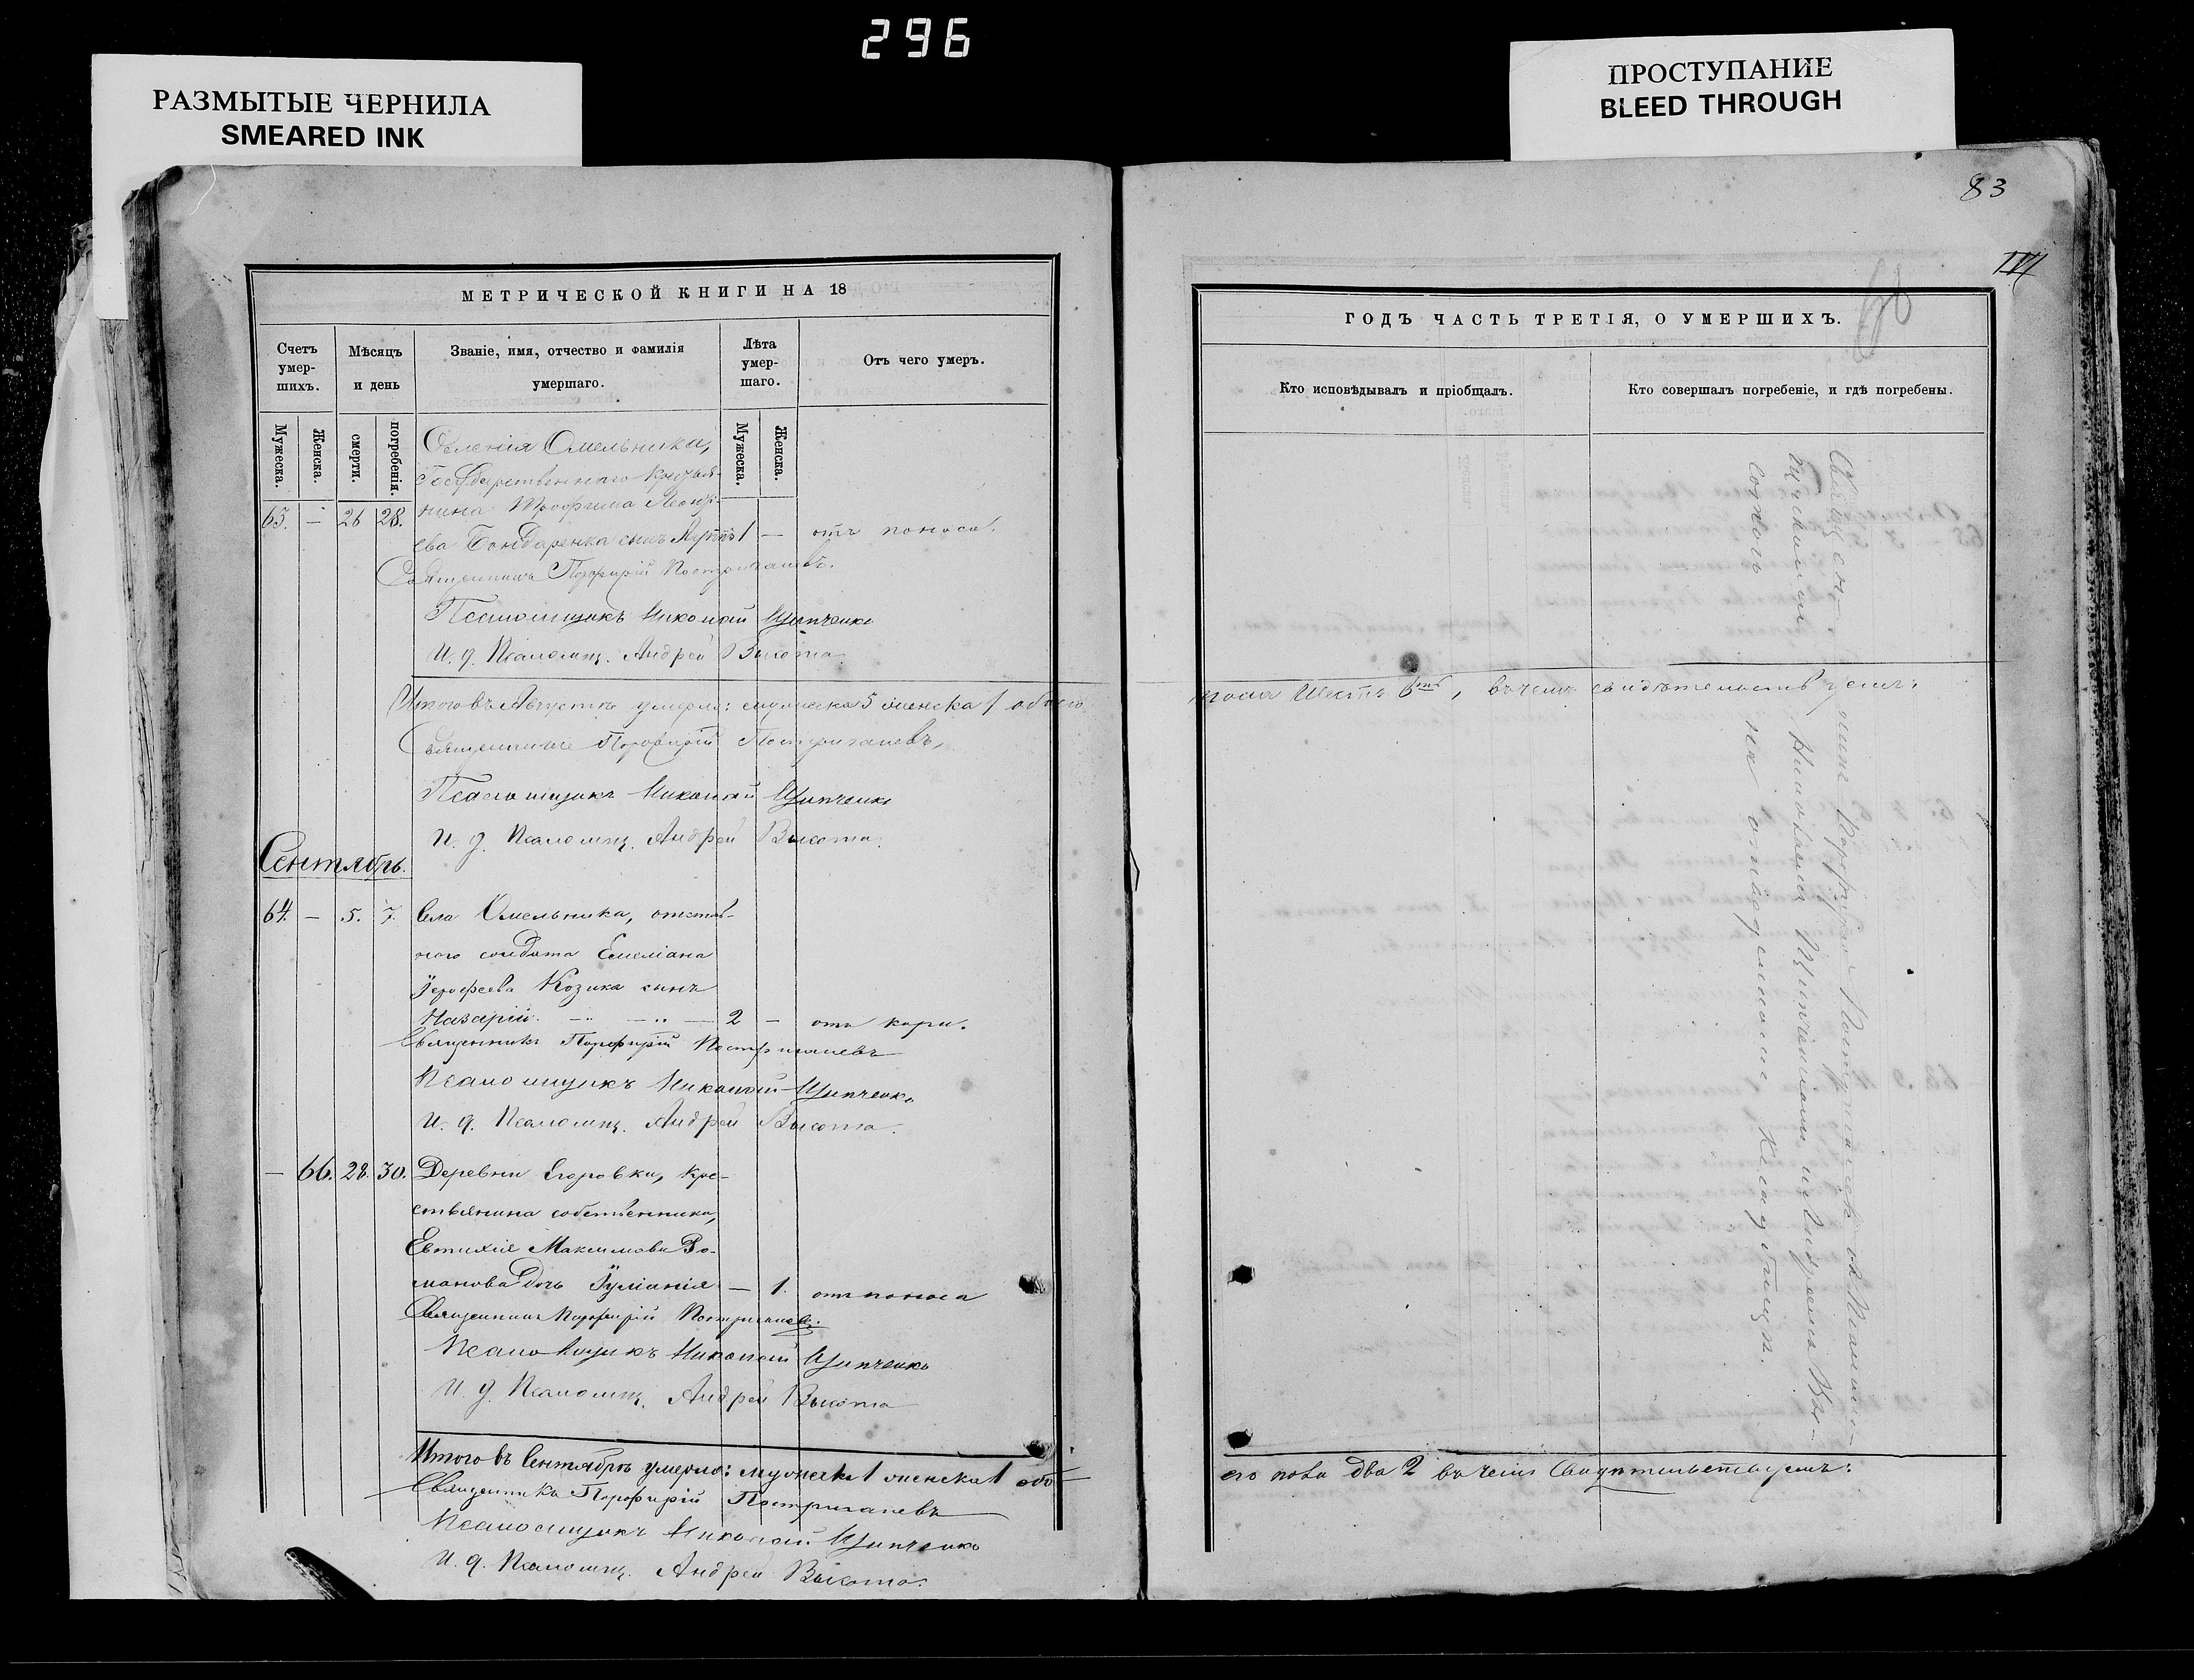 296
РАЗМЫТЫЕ ЧЕРНИЛА
SMEARED INK
ПРОСТУПАНИЕ
BLEED THROUGH
МЕТРИЧЕСКОЙ КНИГИ НА 18
Счетъ умер-шихъ.
Мѣсяцъ и день
Званіе, имя, отчество и фамилія умершаго.
Лѣта умер-шаго.
Отъ чего умеръ.
Мужеска.
Женска.
смерти.
погребенія.
Мужеска.
Женска.
Селенія Омельника,
Государственнаго крестья-
65. — 26 28. нина Трофима Леонт-
ева Бондаренка сынъ 1 — отъ поноса.
Священникъ Порфирій Постригачевъ.
Псаломщикъ Николай Щипченко
И. д. Псаломщ. Андрей Высота.
Итого въ Августѣ умерло: мужеска 5 женска 1 обоего
Священникъ Порфирій Постригачевъ,
Псаломщикъ Николай Щипченко
И. д. Псаломщ. Андрей Высота.
Сентябрь.
64. — 5. 7. Села Омельника, отстав-
ного солдата Емеліана
Іерофеева Козика сынъ
Назарій. — 2 — отъ кори.
Священникъ Порфирій Постригачевъ
Псаломщикъ Николай Щипченко
И. д. Псаломщ. Андрей Высота.
— 66. 28. 30. Деревни Егоровки, кре-
стьянина собственника,
Евтихія Максимова Ро-
манова дочь Іуліанія — 1. отъ поноса
Священникъ Порфирій Постригачевъ.
Псаломщикъ Николай Щипченко
И. д. Псаломщ. Андрей Высота
Итого въ Сентябрѣ умерло: мужеска 1 женска 1 обо-
Священникъ Порфирій Постригачевъ
Псаломщикъ Николай Щипченко
И. д. Псаломщ. Андрей Высота.
83
ГОДЪ ЧАСТЬ ТРЕТІЯ, О УМЕРШИХЪ.
Кто исповѣдывалъ и пріобщалъ.
Кто совершалъ погребеніе, и гдѣ погребены.
Священ-
никъ Порфирій Постригачевъ съ Псаломщ-
щикомъ Николаемъ Щипченкомъ и Андреемъ Вы-
сотою на приходскомъ кладбищѣ.
пола шесть 6ть, въ чемъ свидѣтельствуемъ:
его пола два 2 въ чемъ свидѣтельствуемъ: